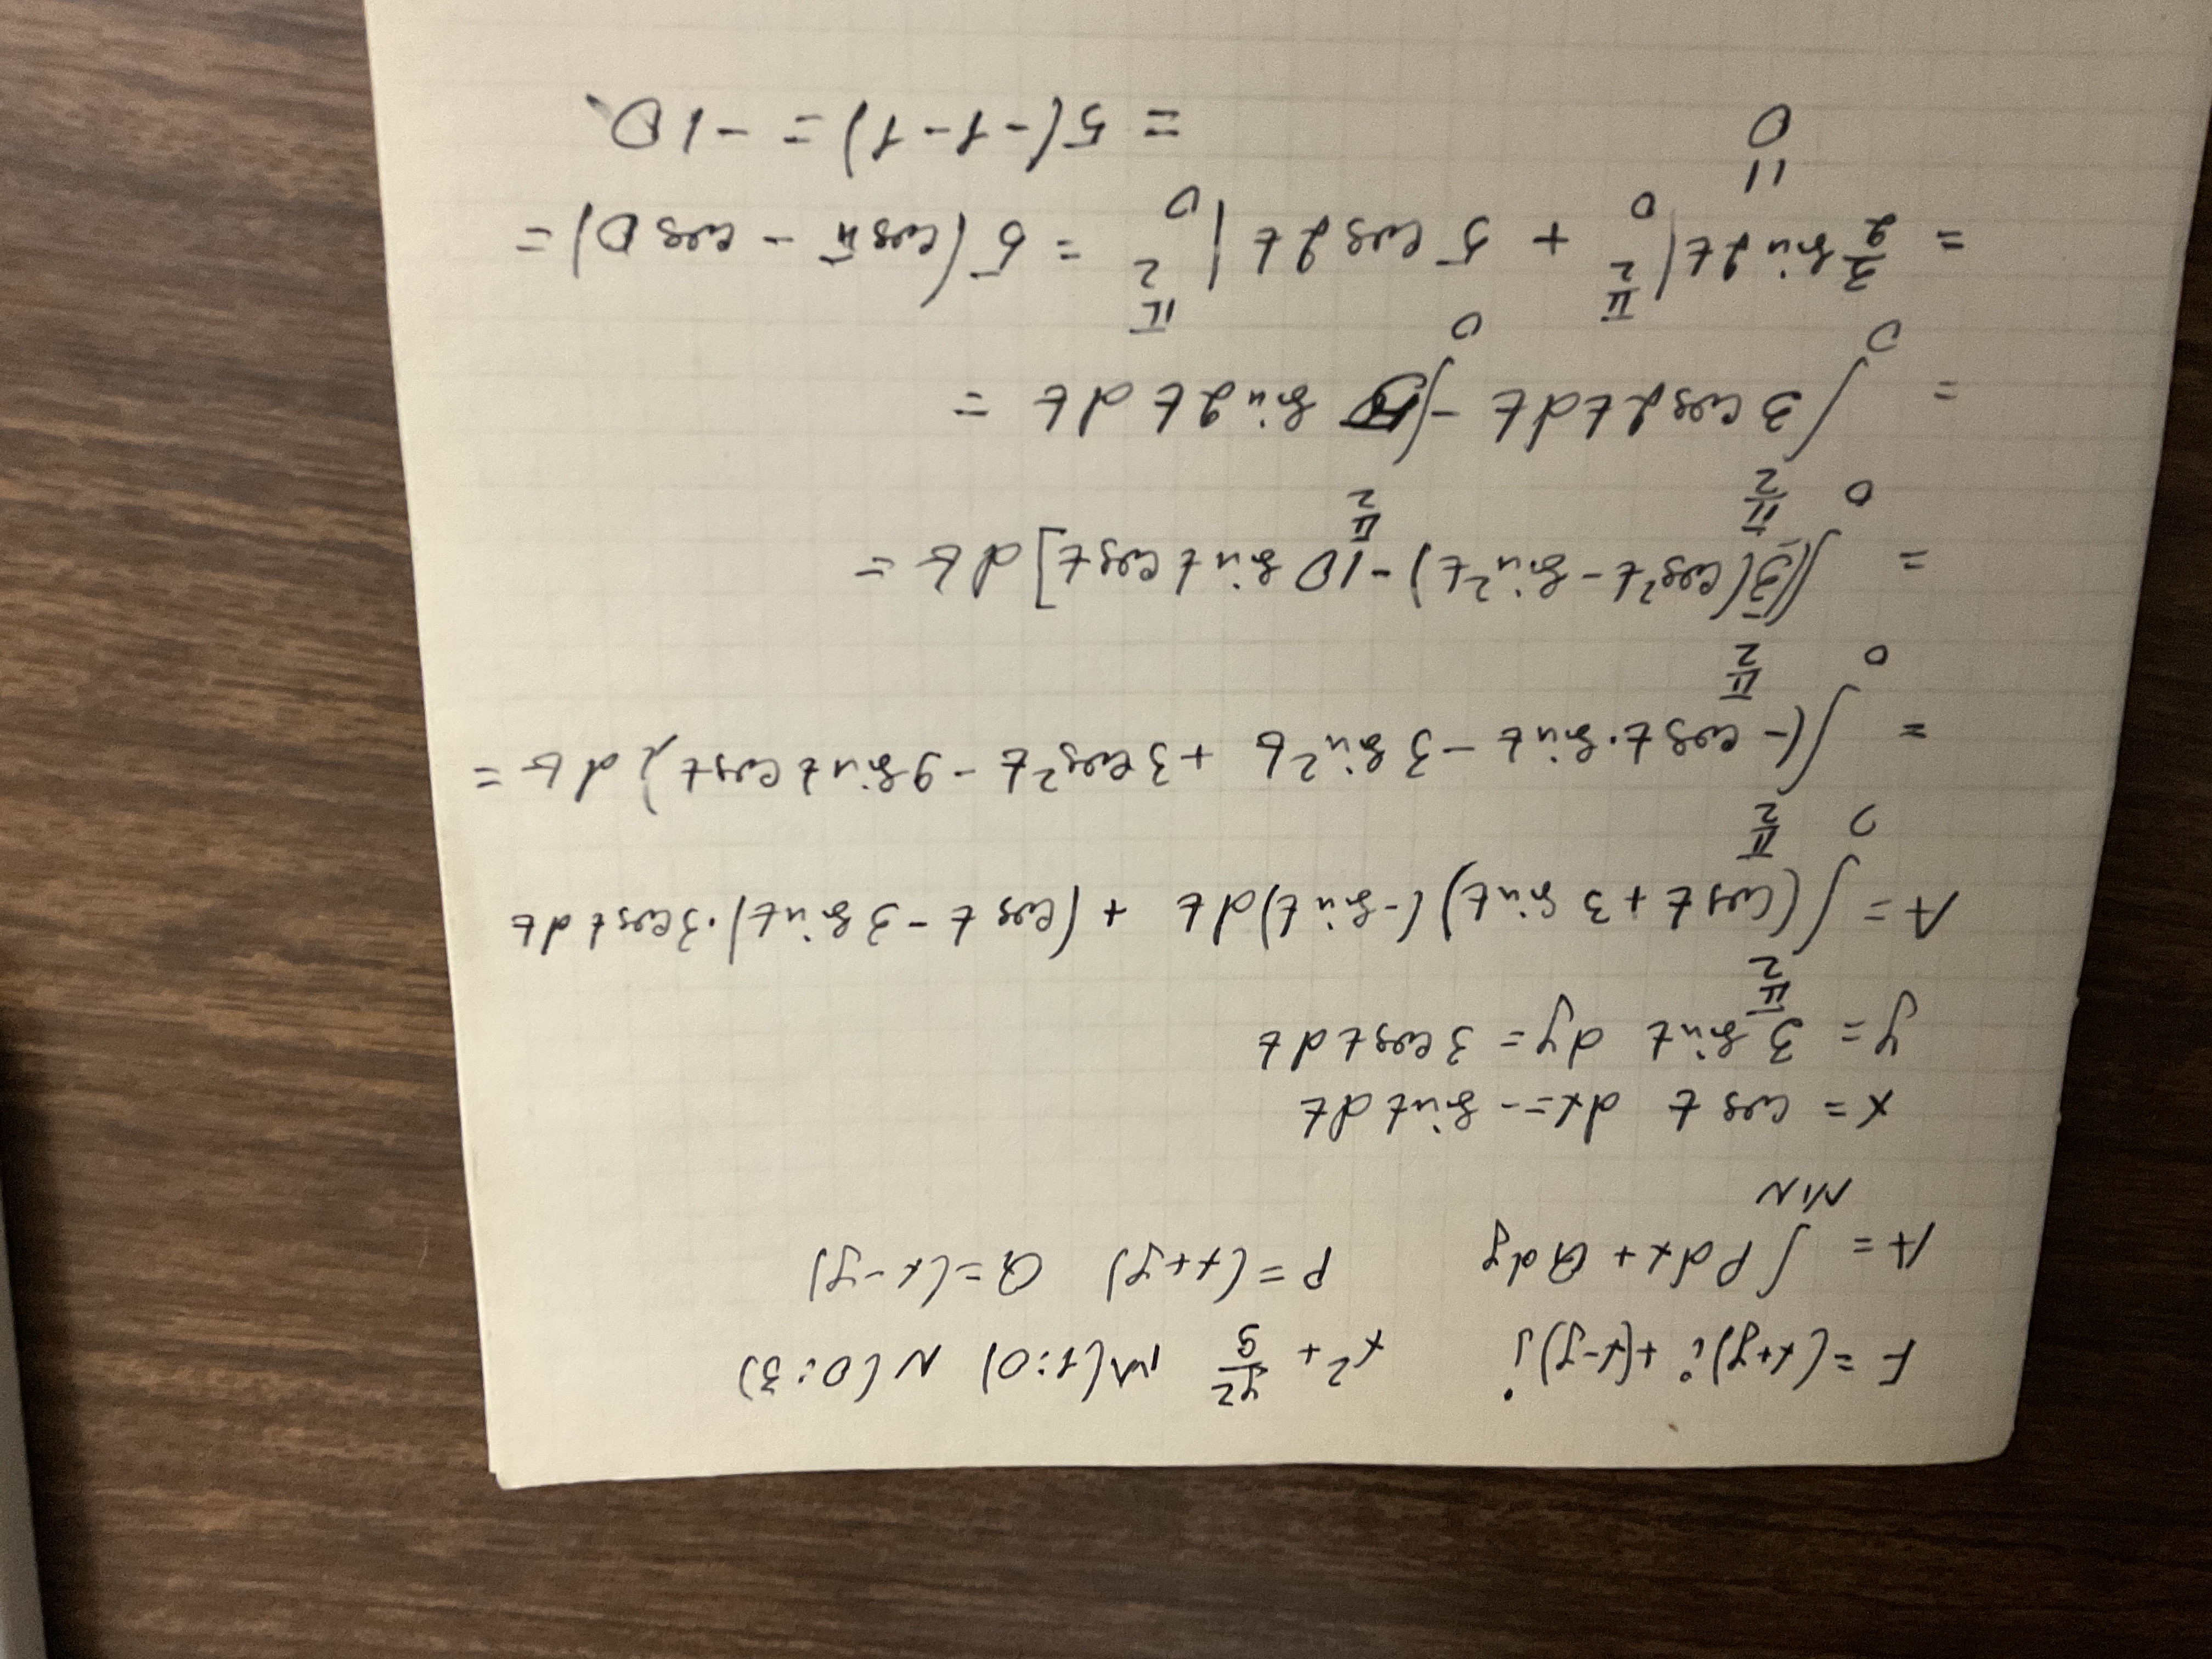 F = (x+y)i + (x-y)j x² + y²/9 M(1;0) N(0;3)
A = ∫ Pdx + Qdy P=(x+y) Q=(x-y)
MN
x = cos t dx = - sin t dt
y = 3 sin t dy = 3 cos t dt
π/2
A = ∫ (cos t + 3 sin t)(-sin t)dt + (cos t - 3 sin t)·3cos t dt
0
π/2
= ∫(- cos t · sin t - 3 sin² t + 3 cos² t - 9 sin t cos t) dt =
0
π/2
= ∫[3(cos² t - sin² t) - 10 sin t cos t] dt =
0
π/2 π/2
= ∫ 3 cos 2t dt - ∫ 5 sin 2t dt =
0 0
= 3/2 sin 2t |π/2 0 + 5 cos 2t |π/2 0 = 5(cos π - cos 0) =
||
0 = 5(-1-1) = -10.